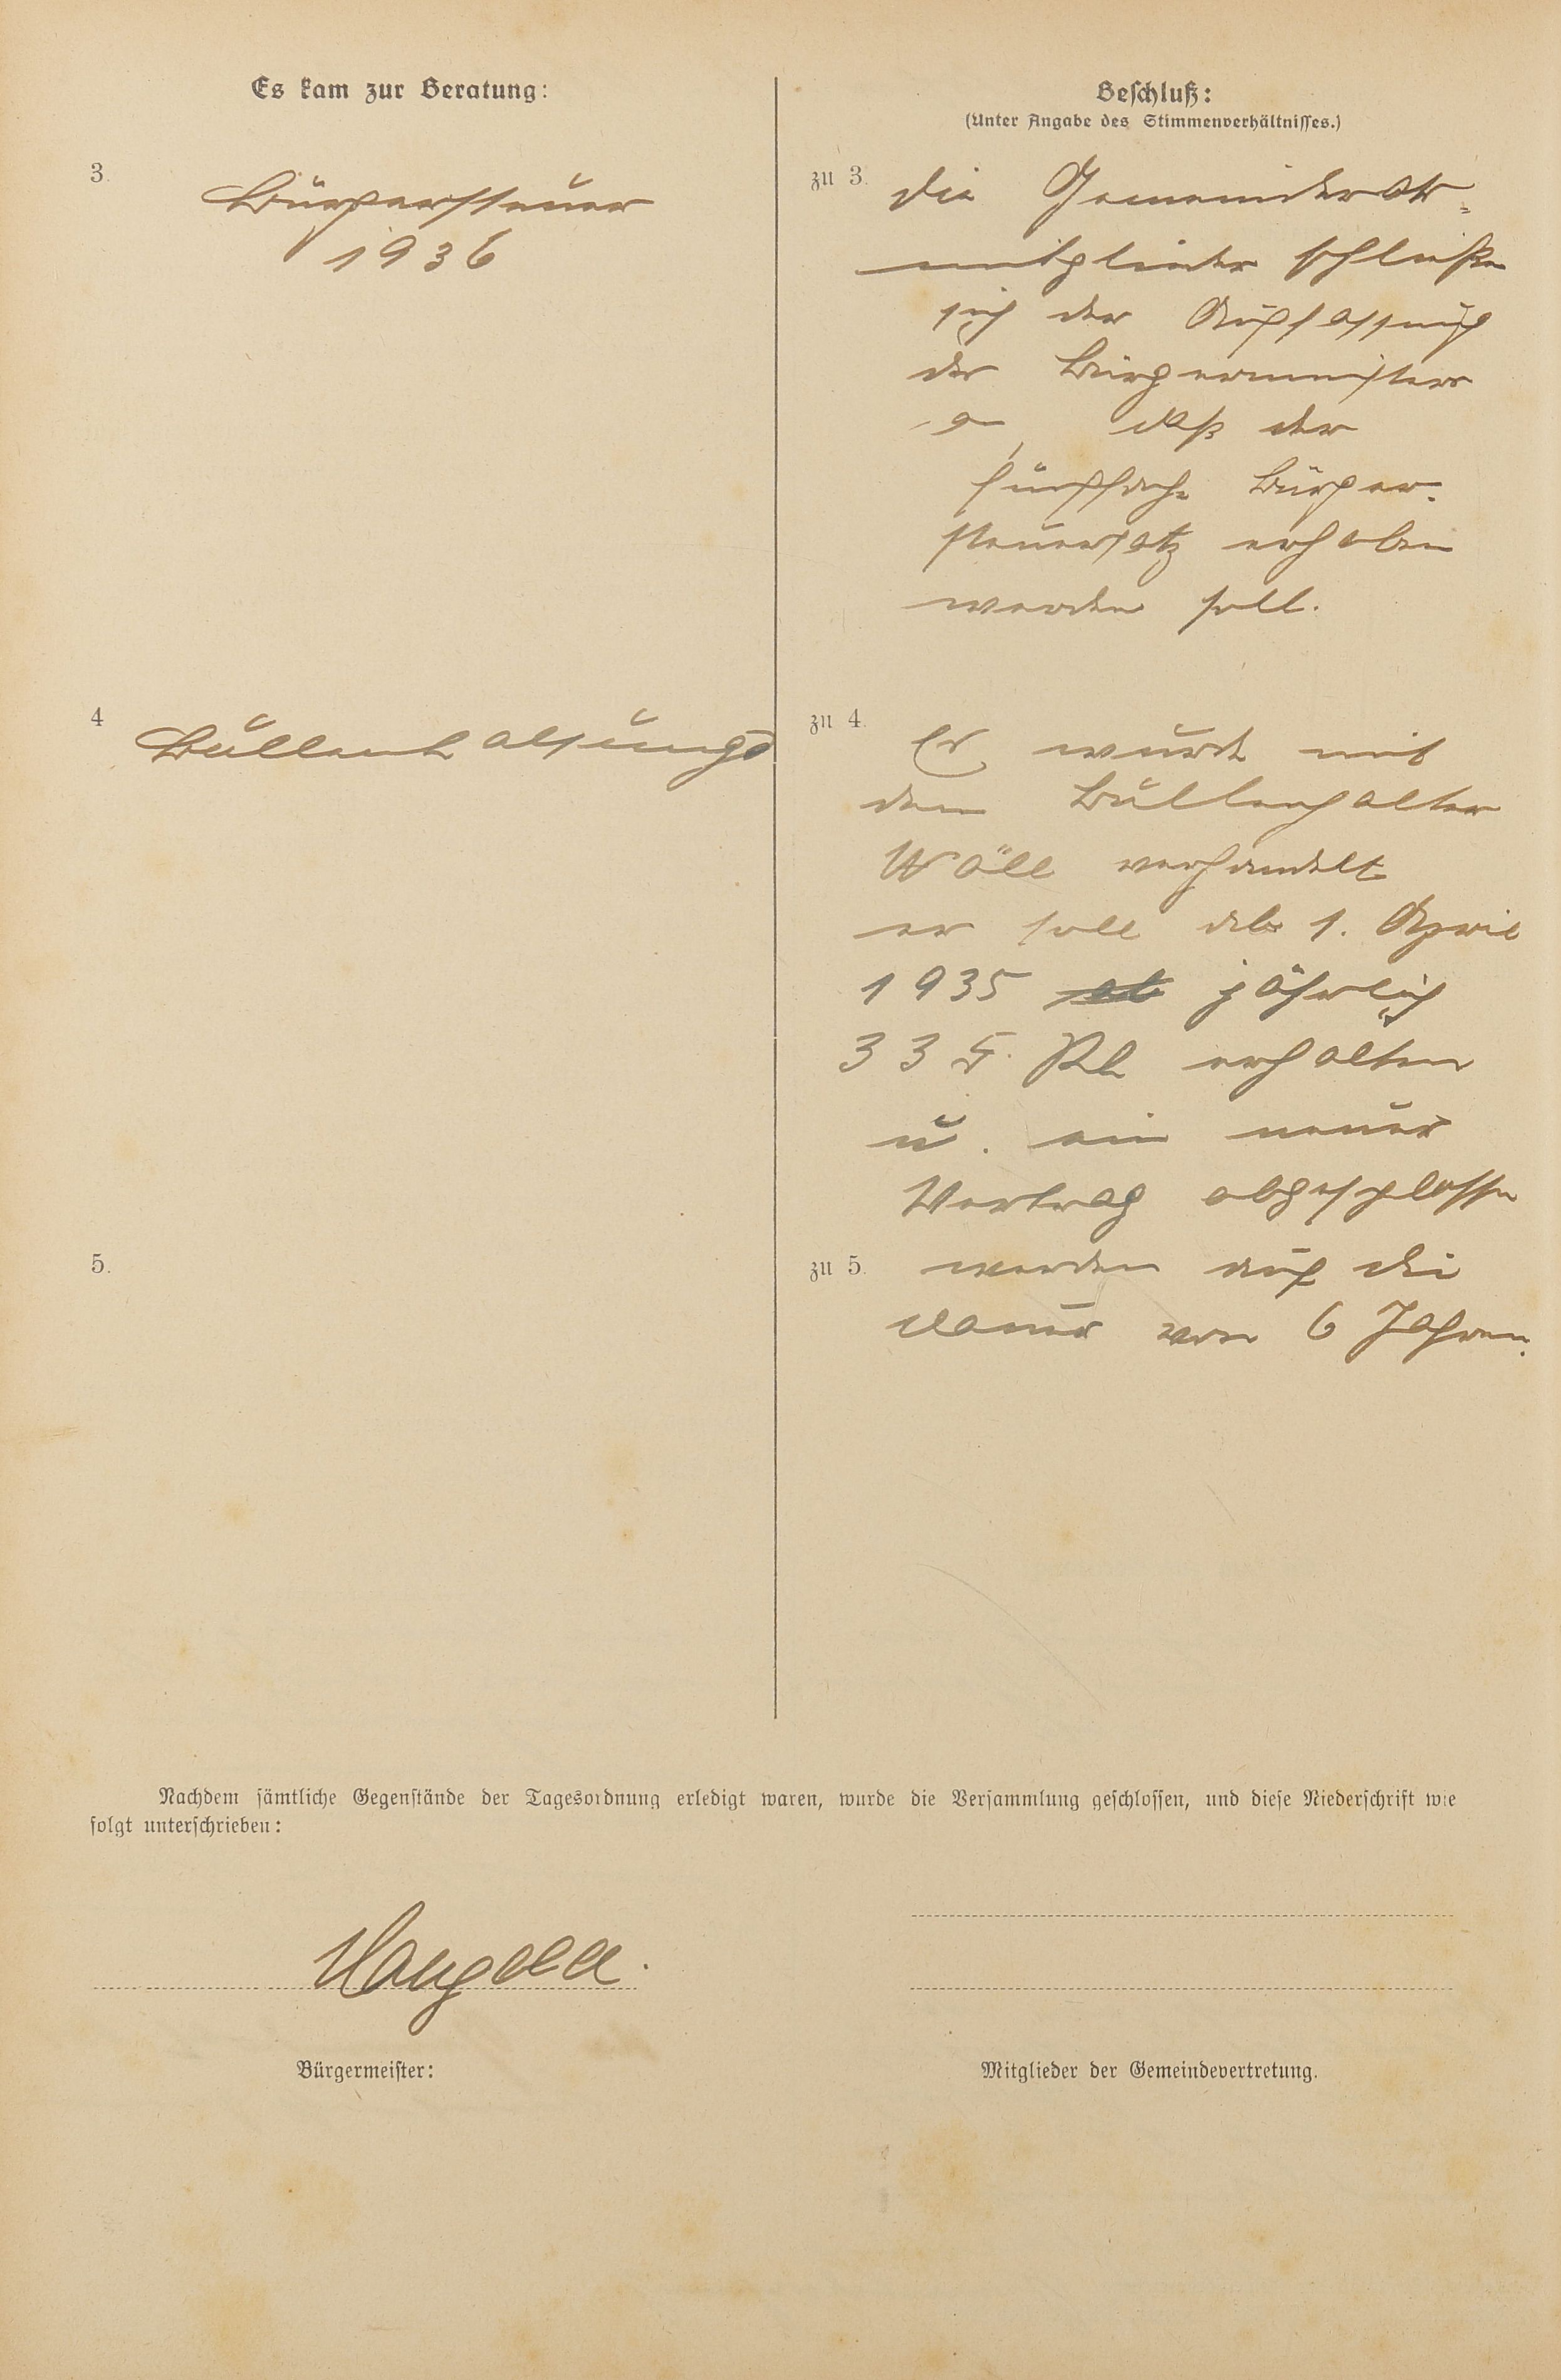 Es kam zur Beratung:
3.
Bürgersteuer
1936
4
Bullenhaltung
5.
Beschluß:
(Unter Angabe des Stimmenverhältnisses.)
zu 3.
die Gemeinderat-
mitglieder schließen
sich der Auffassung
des Bürgermeisters
an, daß der
fünffache Bürger-
steuersatz erhoben
werden soll.
zu 4.
Es wurde mit
dem Bullenhalter
Wöll verhandelt
er soll ab 1. April
1935 jährlich
335. RM erhalten
u. ein neuer
Vertrag abgeschlossen
zu 5.
werden auf die
dauer von 6 Jahren.
Nachdem sämtliche Gegenstände der Tagesordnung erledigt waren, wurde die Versammlung geschlossen, und diese Niederschrift wie
folgt unterschrieben:
Bürgermeister:
Mitglieder der Gemeindevertretung.